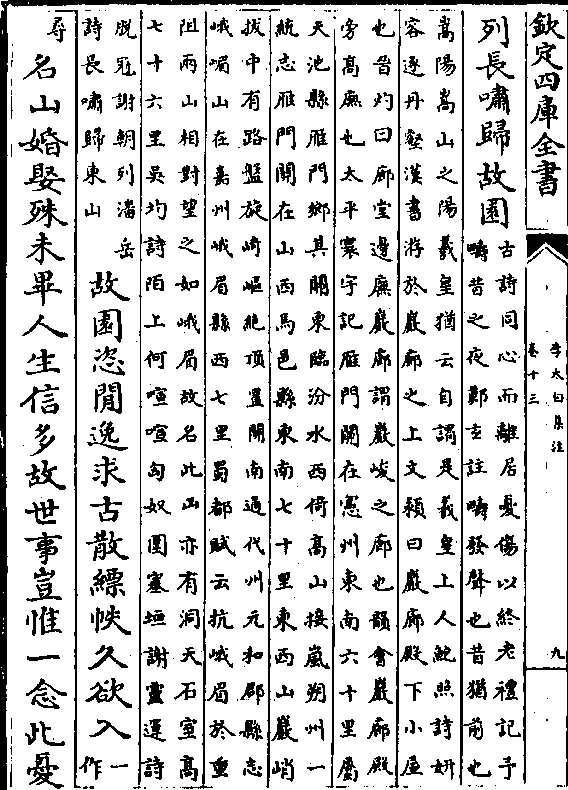 欽定四庫全書
李太白集注
卷十三
九
列長嘯歸故園
古詩同心而離居憂傷以終老禮記予
疇昔之夜鄭玄註疇發聲也昔猶前也
嵩陽嵩山之陽羲皇猶云自謂是羲皇上人鮑照詩妍
容逐丹壑漢書游於巖廊之上文頴曰巖廊殿下小屋
也晉灼曰廊堂邊廡巖廊謂巖峻之廊也韻會巖廊殿
旁高廡也太平寰宇記雁門關在憲州東南六十里屬
天池縣雁門鄉其關東臨汾水西倚髙山接嵐朔州一
統志雁門關在山西馬邑縣東南七十里東西山巖峭
拔中有路盤旋崎嶇絶頂置關南通代州元和郡縣志
峨嵋山在嘉州峨眉縣西七里蜀都賦云抗峨眉於重
阻兩山相對望之如峨眉故名此山亦有洞天石室髙
七十六里吳均詩陌上何喧喧匈奴圍塞垣謝靈運詩
脱冠謝朝列潘岳
詩長嘯歸東山
故園恣閒逸求古散縹帙久欲入
一作
尋
名山婚娶殊未畢人生信多故世事豈惟一念此憂